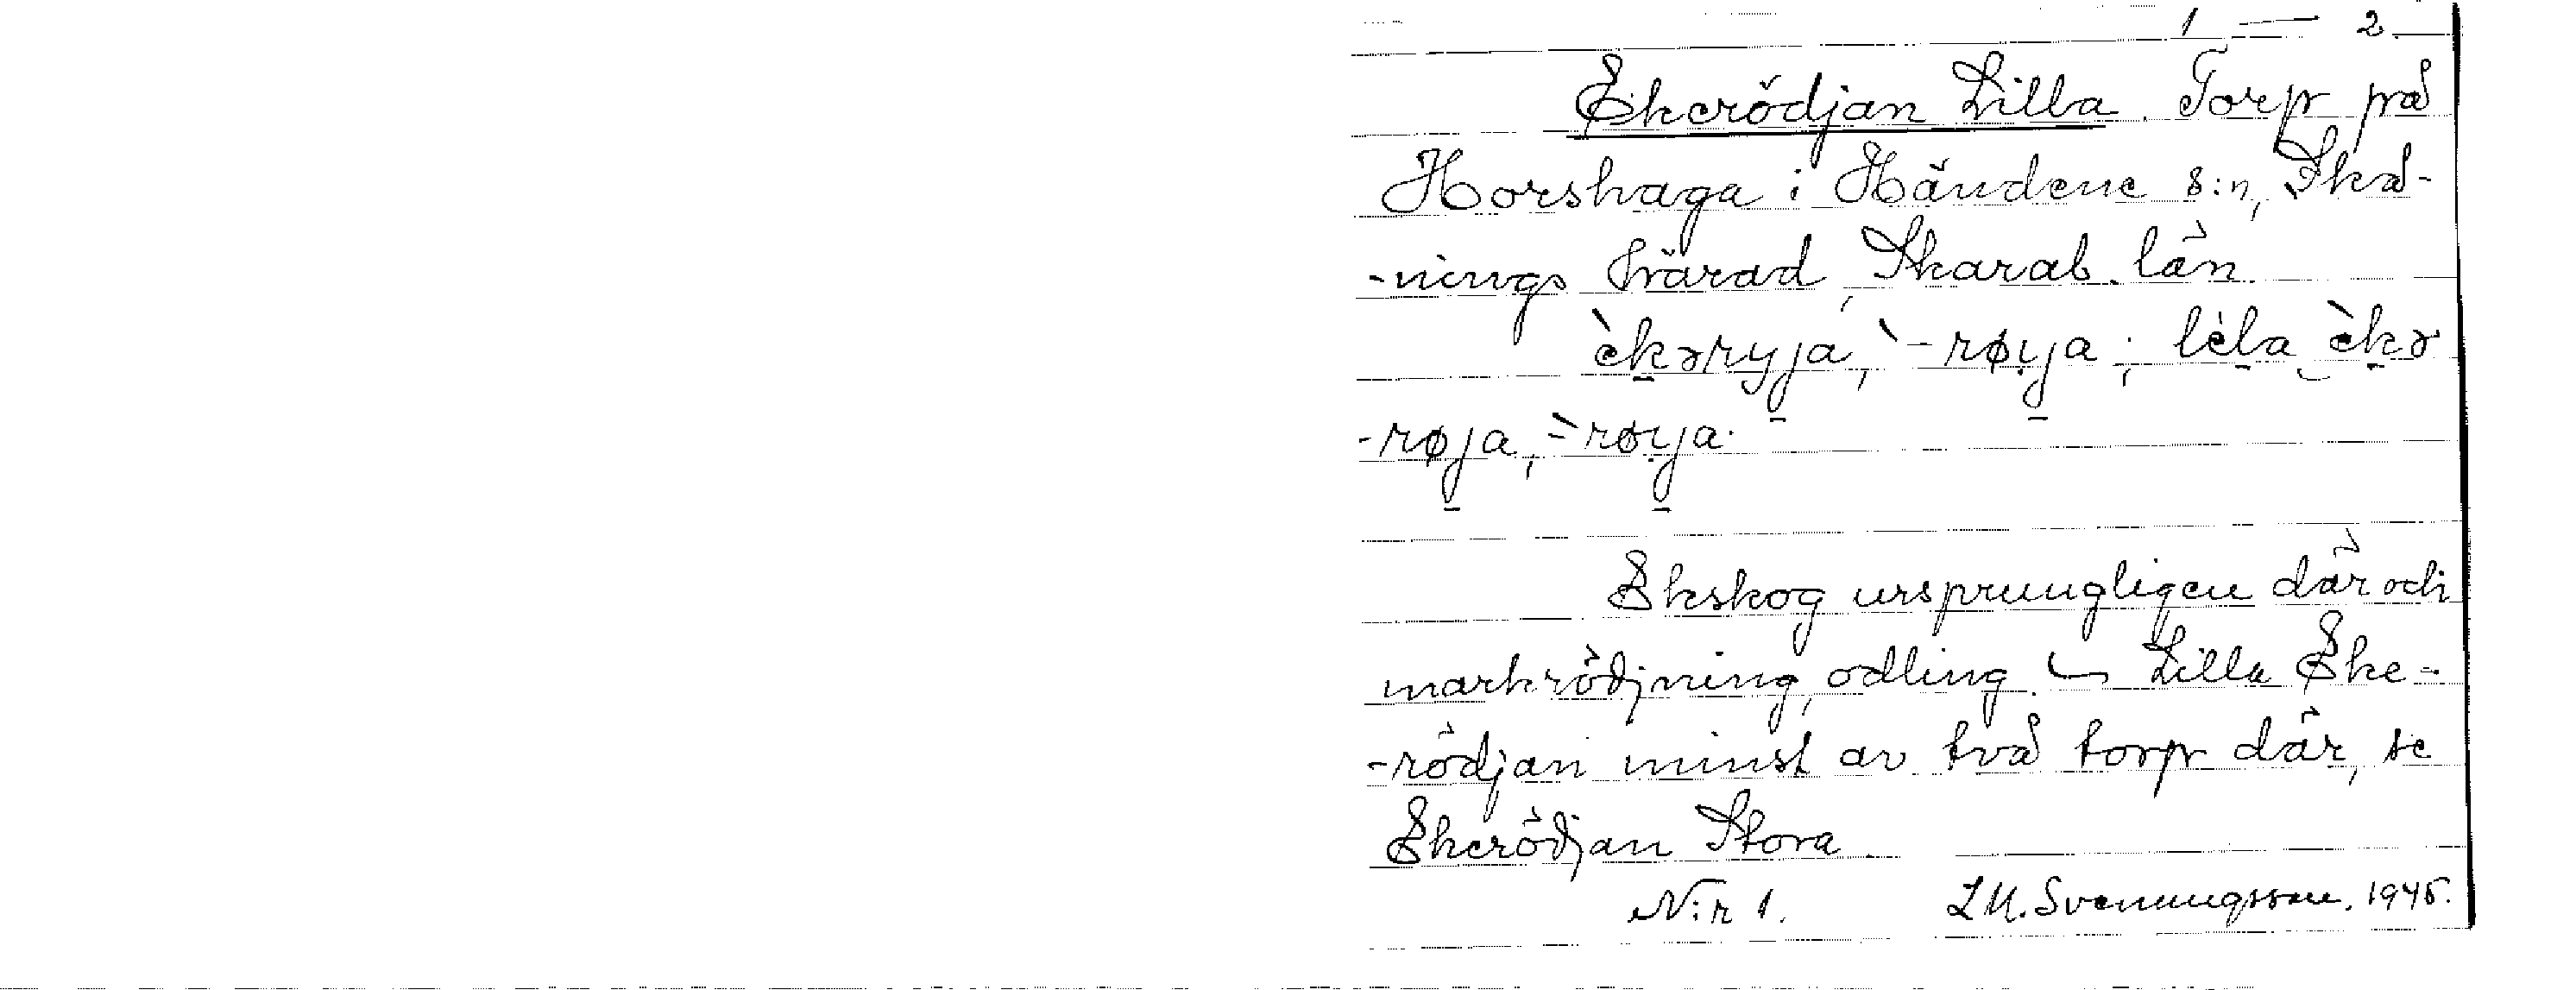 1 — 2
Ekerödjan Lilla. Torp på
Horshaga i Händene s:n, Skå-
-nings härad, Skarab. län.
èkəryja, `-røyja; lèla èkə
-røja, =`røyja.
Ekskog ursprungligen där och
markrödjning, odling. — Lilla Eke-
-rödjan minst av två torp där, se
Ekerödjan Stora
N:r 1. L M. Svenungsson. 1945.